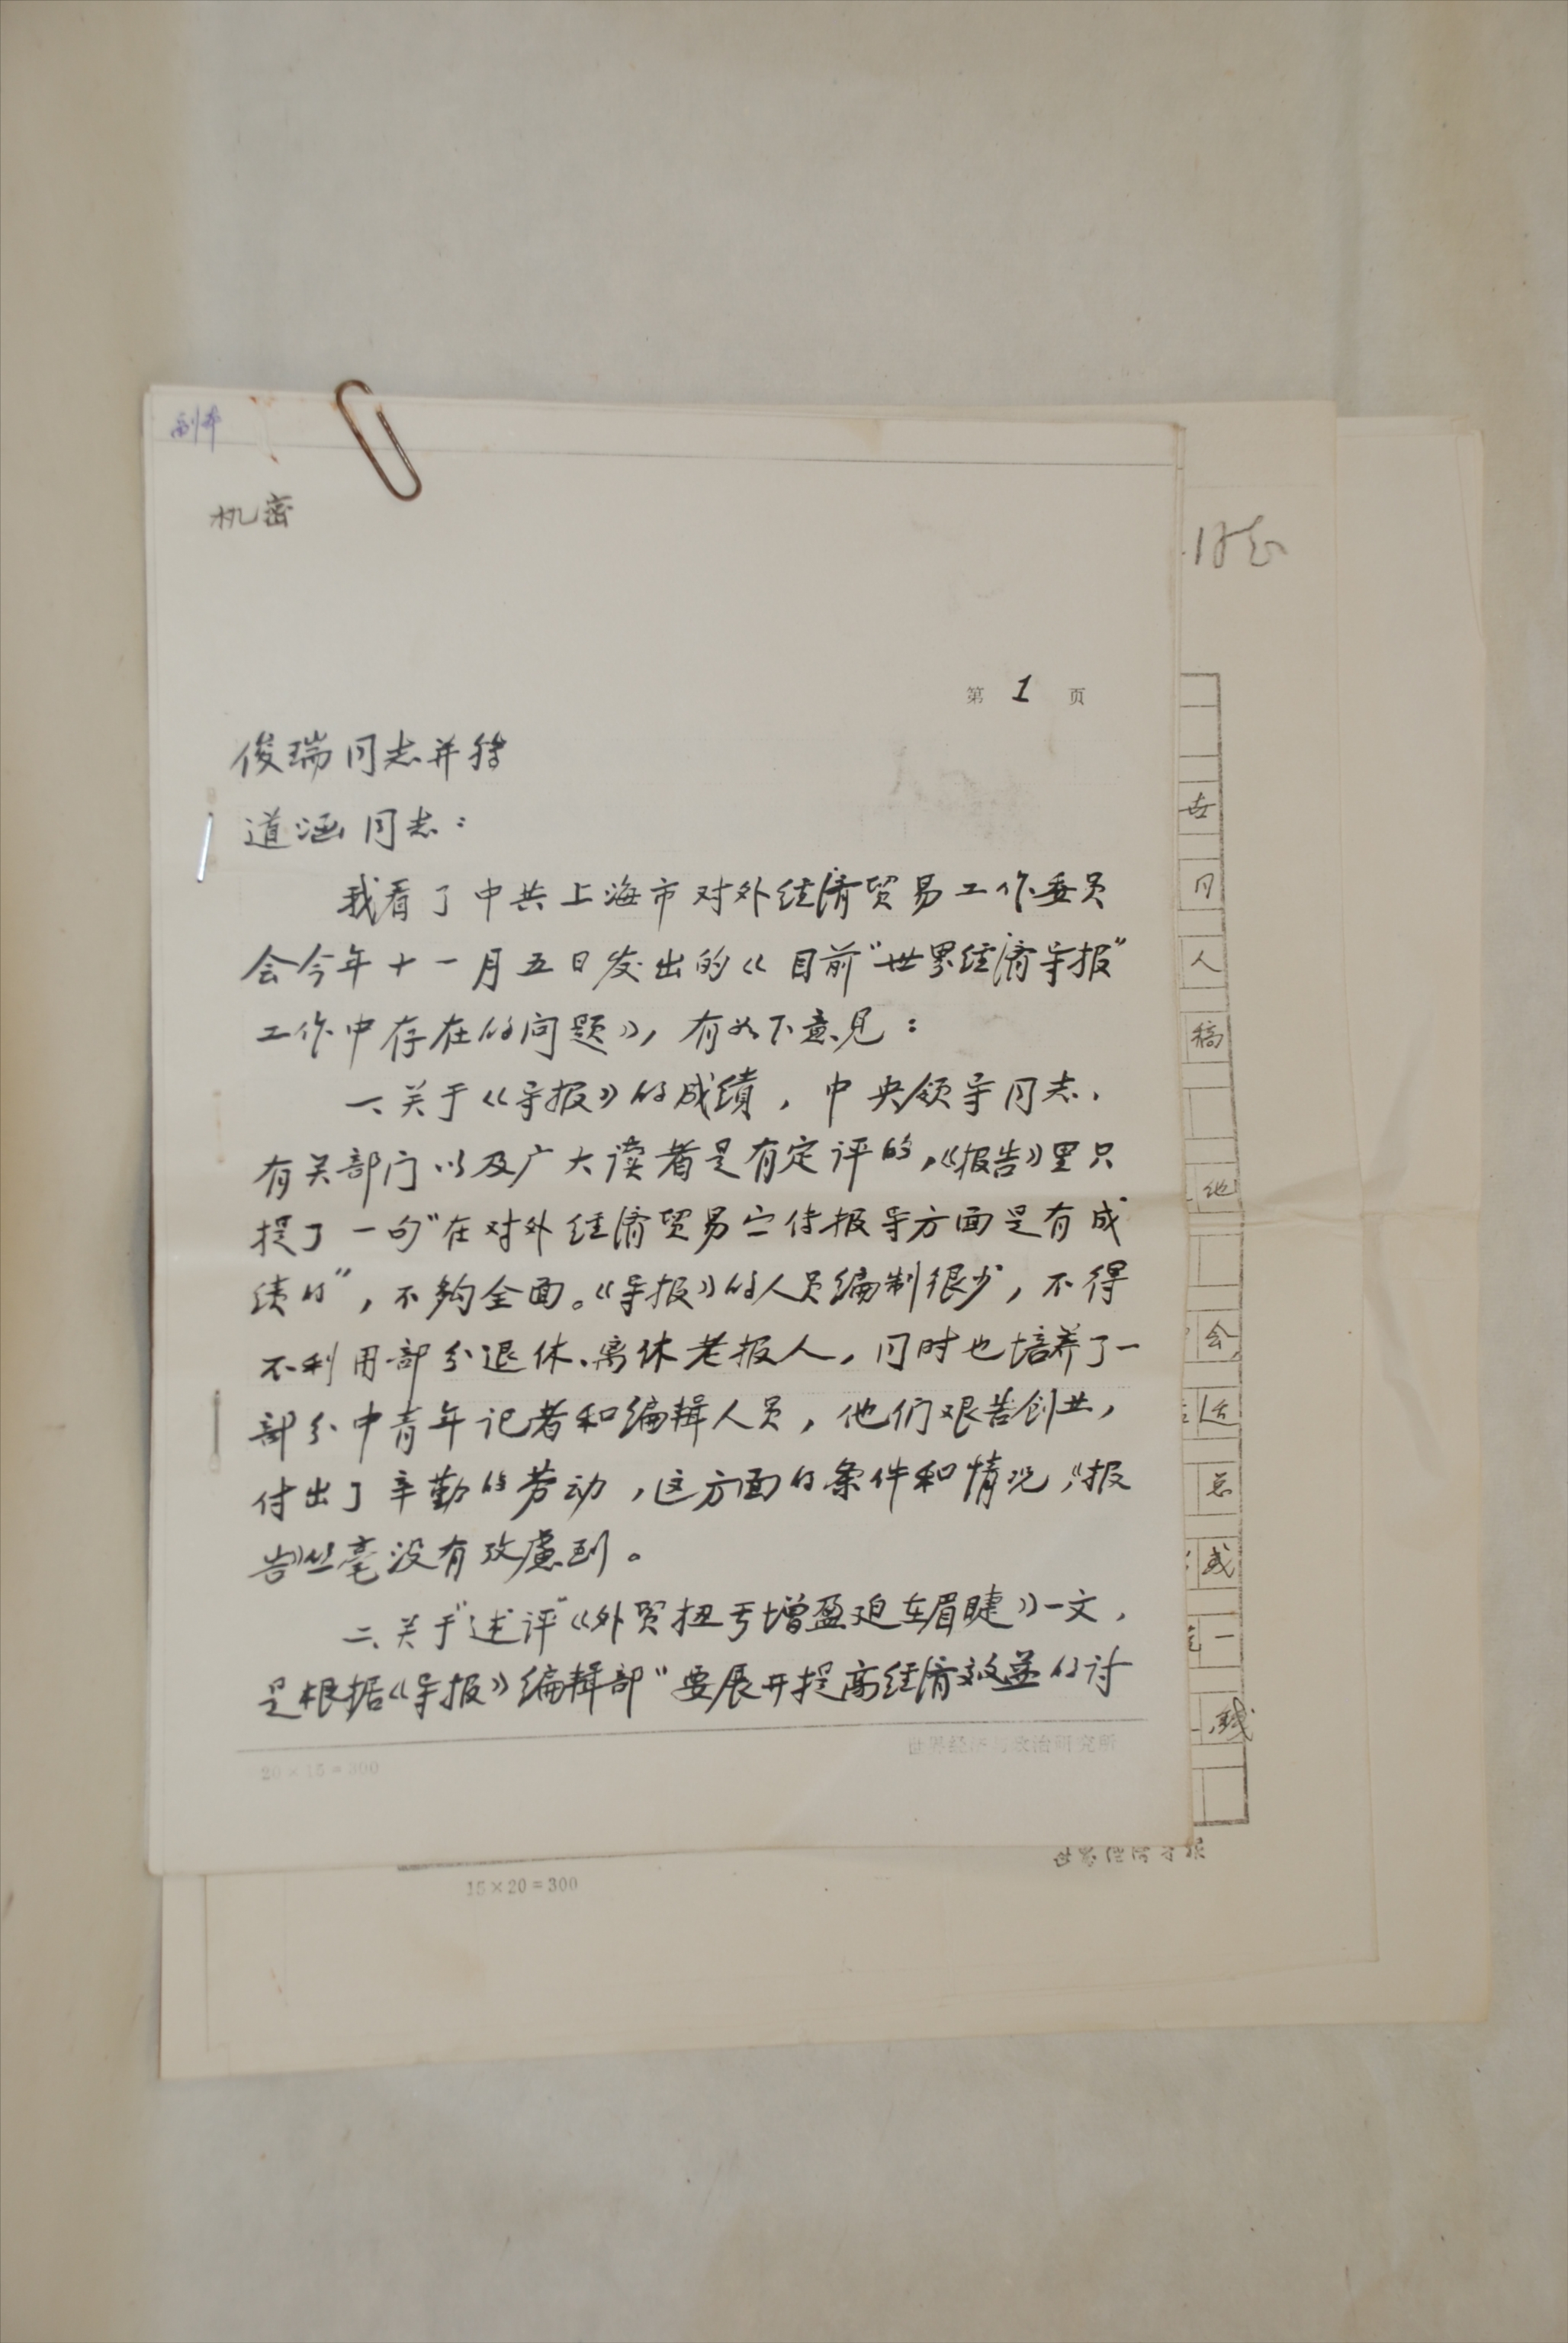 副本
机密
第 1 页
俊瑞同志并转
道涵同志：
我看了中共上海市对外经济贸易工作委员
会今年十一月五日发出的《目前“世界经济导报”
工作中存在的问题》，有如下意见：
一、关于《导报》的成绩，中央领导同志、
有关部门以及广大读者是有定评的，《报告》里只
提了一句“在对外经济贸易宣传报导方面是有成
绩的”，不够全面。《导报》的人员编制很少，不得
不利用部分退休、离休老报人，同时也培养了一
部分中青年记者和编辑人员，他们艰苦创业，
付出了辛勤的劳动，这方面的条件和情况，《报
告》丝毫没有考虑到。
二、关于“述评”《外贸扭亏增盈迫在眉睫》一文，
是根据《导报》编辑部“要展开提高经济效益的讨
20×15=300
世界经济与政治研究所
15×20=300
世界经济导报
世
同
人
稿
他
会
总
或
一